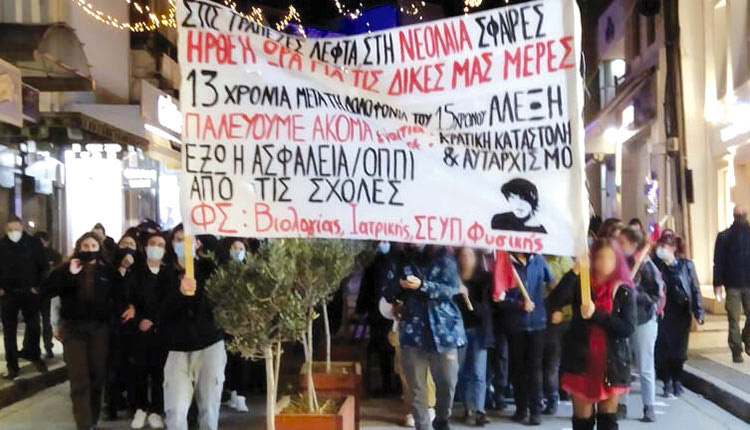 ΣΤΙΣ ΤΡΑΠΕΖΕΣ ΛΕΦΤΑ ΣΤΗ ΝΕΟΛΑΙΑ ΣΦΑΙΡΕΣ
ΗΡΘΕ Η ΩΡΑ ΓΙΑ ΤΙΣ ΔΙΚΕΣ ΜΑΣ ΜΕΡΕΣ
13 ΧΡΟΝΙΑ ΜΕΤΑ ΤΗ ΔΟΛΟΦΟΝΙΑ ΤΟΥ 15ΧΡΟΝΟΥ ΑΛΕΞΗ
ΠΑΛΕΥΟΥΜΕ ΑΚΟΜΑ ΕΝΑΝΤΙΑ ΣΕ : ΚΡΑΤΙΚΗ ΚΑΤΑΣΤΟΛΗ
& ΑΥΤΑΡΧΙΣΜΟ
ΕΞΩ Η ΑΣΦΑΛΕΙΑ/ΟΠΠΙ
ΑΠΟ ΤΙΣ ΣΧΟΛΕΣ
ΦΣ : Βιολογίας, Ιατρικής, ΣΕΥΠ, Φυσικής